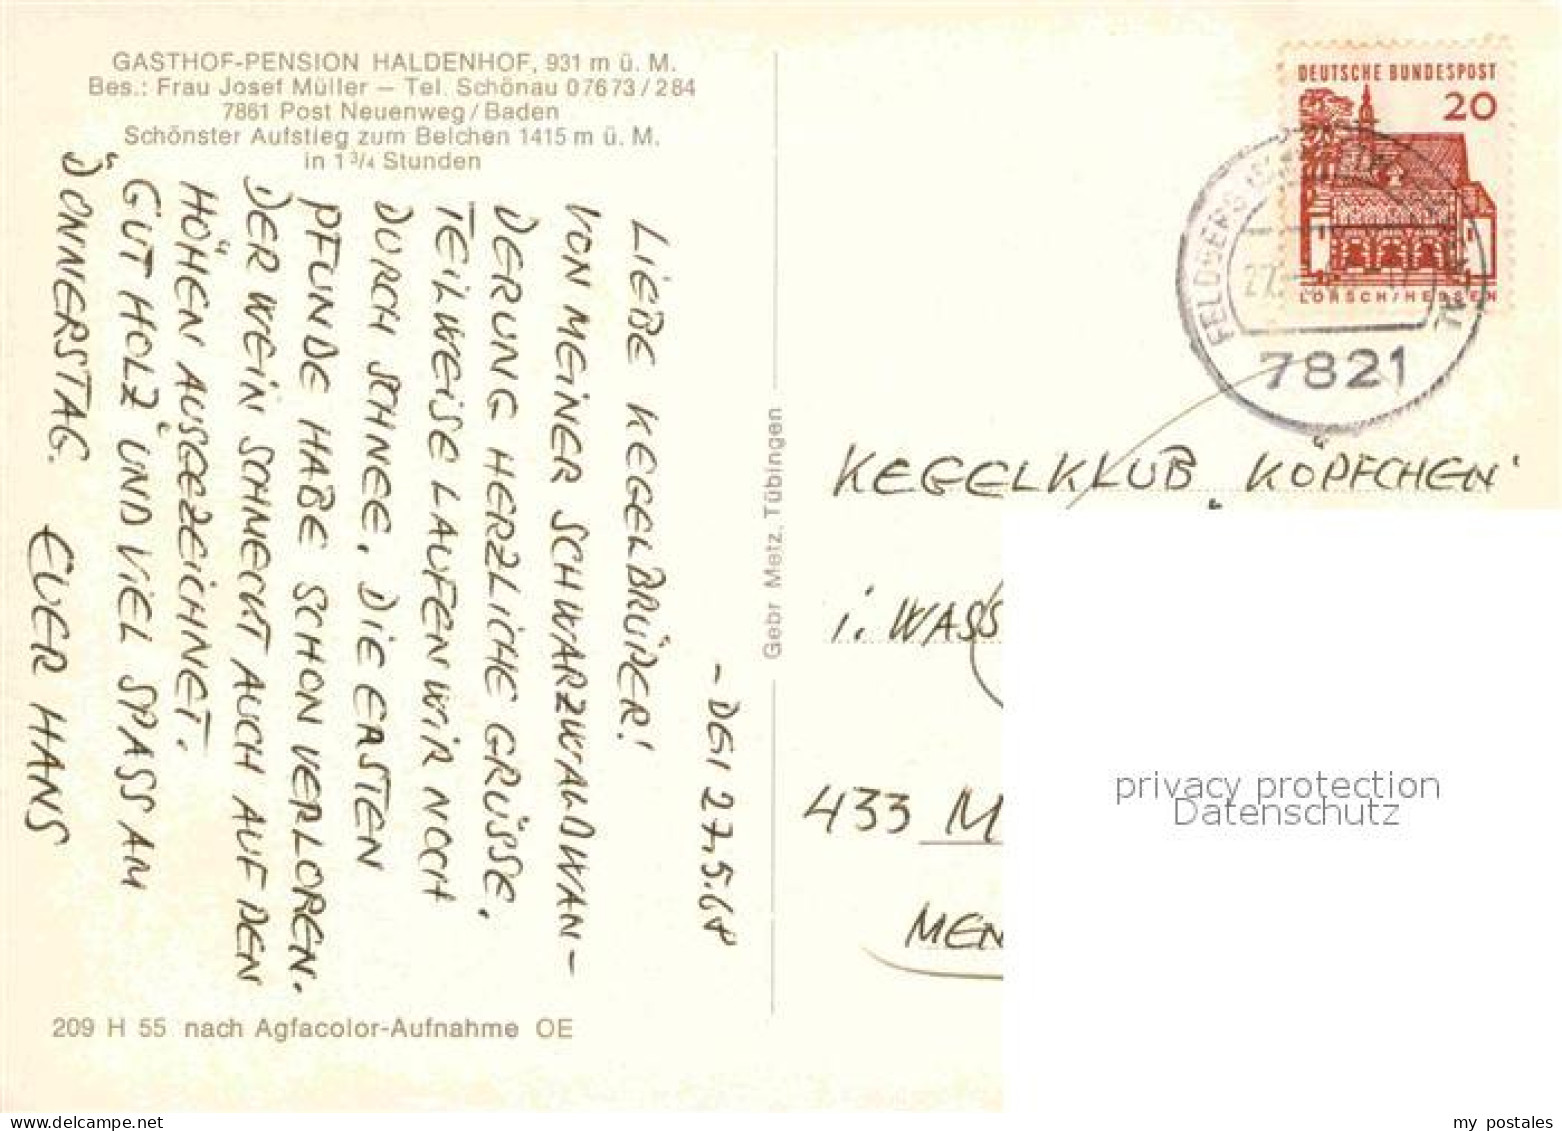 GASTHOF-PENSION HALDENHOF, 931 m ü. M.
Bes.: Frau Josef Müller — Tel. Schönau 07673/284
7861 Post Neuenweg/Baden
Schönster Aufstieg zum Belchen 1415 m ü. M.
in 1 3/4 Stunden
27.5.68
LIEBE KEGELBRÜDER!
VON MEINER SCHWARZWALDWAN-
DERUNG HERZLICHE GRÜSSE.
TEILWEISE LAUFEN WIR NOCH
DURCH SCHNEE. DIE ERSTEN
PFUNDE HABE SCHON VERLOREN.
DER WEIN SCHMECKT AUCH AUF DEN
HÖHEN AUSGEZEICHNET.
"GUT HOLZ" UND VIEL SPASS AM
DONNERSTAG.
EUER HANS
209 H 55 nach Agfacolor-Aufnahme OE
Gebr Metz, Tübingen
DEUTSCHE BUNDESPOST
20
LORSCH/HESSEN
7821
KEGELKLUB „KÖPFCHEN“
i. WASS
433 M
MEN
privacy protection
Datenschutz
my postales